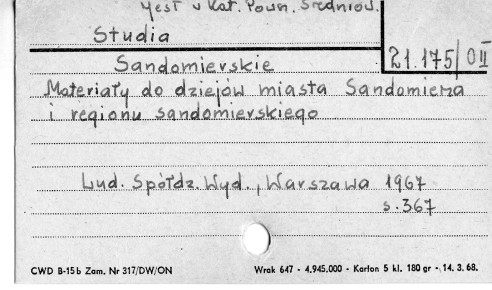 Jest w Kat. Powsz. Sredniow.
Studia
Sandomierskie
21.175/OII
Materiały do dziejów miasta Sandomierza
i regionu sandomierskiego
Lud. Spółdz. Wyd., Warszawa 1967
s. 367
CWD B-15b Zam. Nr 317/DW/ON
Wrak 647 - 4.945.000 - Karton 5 kl. 180 gr - 14. 3. 68.